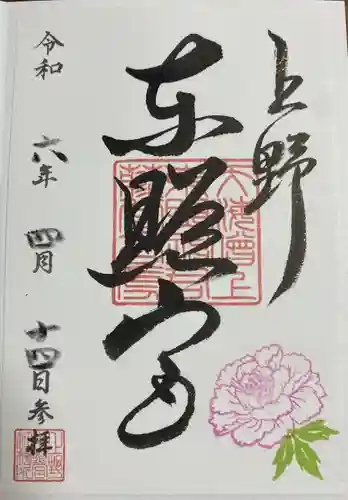 上野
東照宮
令和 六年 四月 十四日参拝